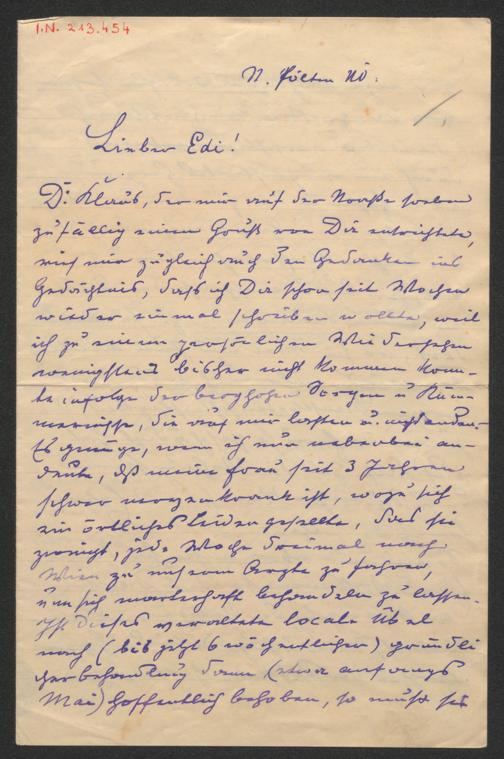 I.N. 213.454
St. Pölten NÖ.
Lieber Edi!
Dr. Klaus, der mir auf der Straße soeben
zufällig einen Gruß von Dir entrichtete,
rief mir zugleich auch den Gedanken ins
Gedächtnis, daß ich Dir schon seit Wochen
wieder einmal schreiben wollte, weil
ich zu einem persönlichen Wiedersehen
wenigstens bisher nicht kommen konn-
te infolge der berghohen Sorgen u Küm-
mernisse, die auf mir lasten u.
Es genüge, wenn ich nur nebenbei an-
deute, daß meine Frau seit 3 Jahren
schwer nervenkrank ist, wozu sich
ein örtliches Leiden gesellte, das sie
zwingt, jede Woche dreimal nach
Wien zu unserem Arzte zu fahren,
u um sich martervoll behandeln zu lassen.
Ist dieses veraltete locale Übel
nach (bis jetzt 6 wöchentlicher) gründli
cher behandlung dann (etwa anfangs
Mai) hoffentlich behoben, so muß sie